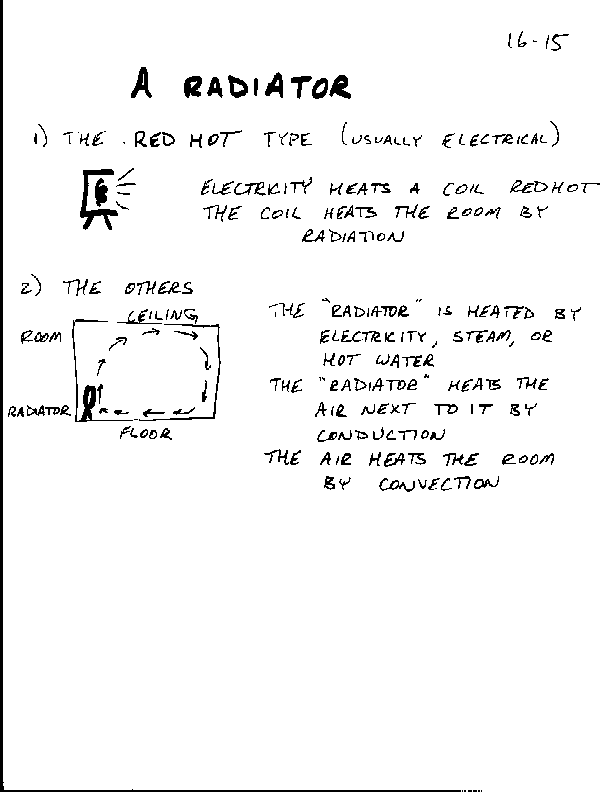 16-15
A RADIATOR
1) THE RED HOT TYPE (USUALLY ELECTRICAL)
ELECTRICITY HEATS A COIL REDHOT
THE COIL HEATS THE ROOM BY
RADIATION
2) THE OTHERS
CEILING
ROOM
RADIATOR
FLOOR
THE "RADIATOR" IS HEATED BY
ELECTRICITY, STEAM, OR
HOT WATER
THE "RADIATOR" HEATS THE
AIR NEXT TO IT BY
CONDUCTION
THE AIR HEATS THE ROOM
BY CONVECTION